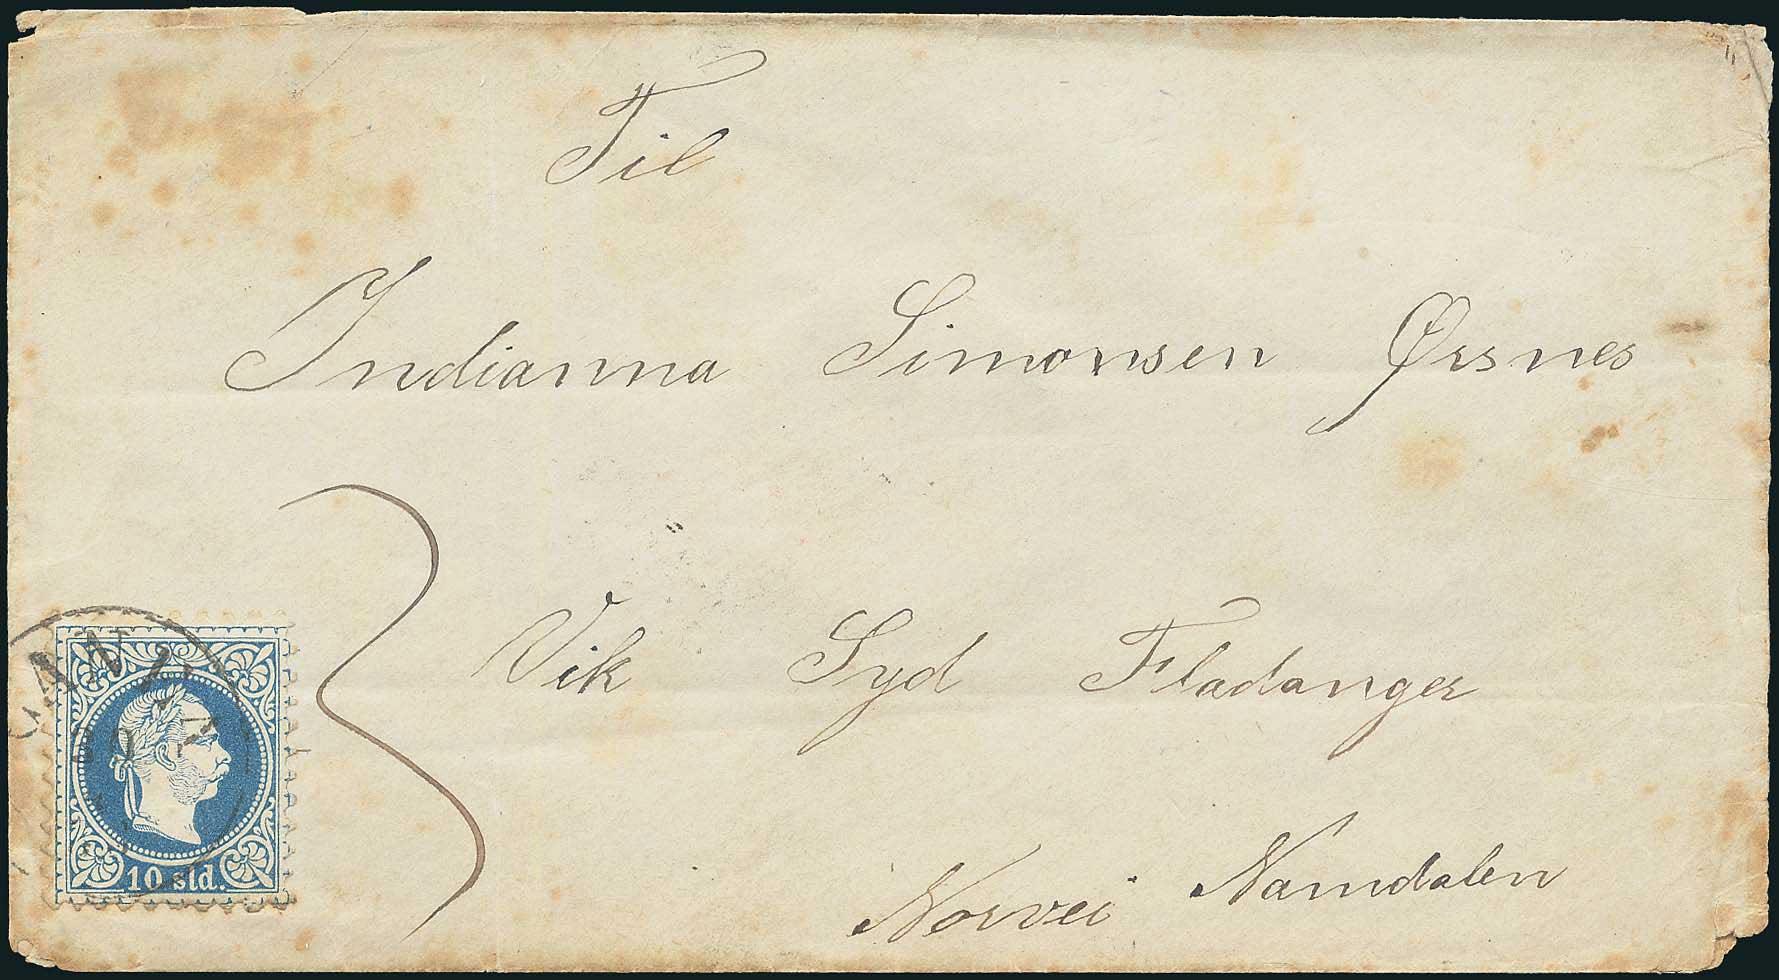 Til
Indianna Simonsen Ørsnes
Vik Syd Fladanger
Norvei Namdalen
10 sld.